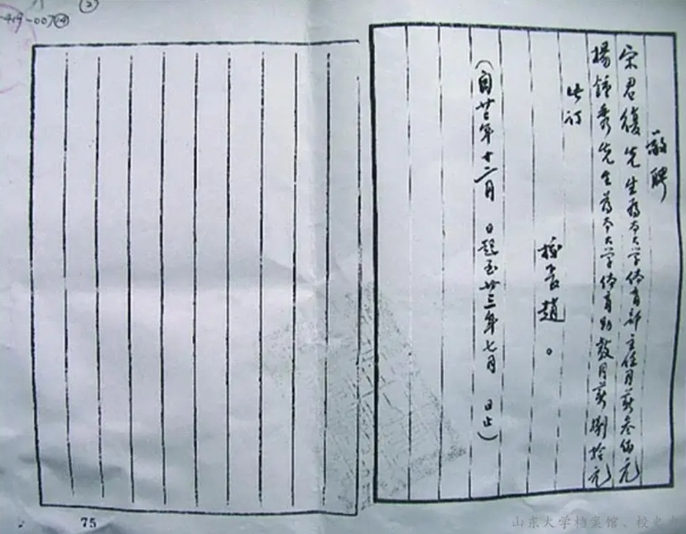 敬聘
宋君復先生為本大学体育部主任月薪叁佰元
楊鍾秀先生為本大学体育助教月薪捌拾元
此订
校長趙。
(自廿二年十二月 日起至廿三年七月 日止)
75
山东大学档案馆、校史